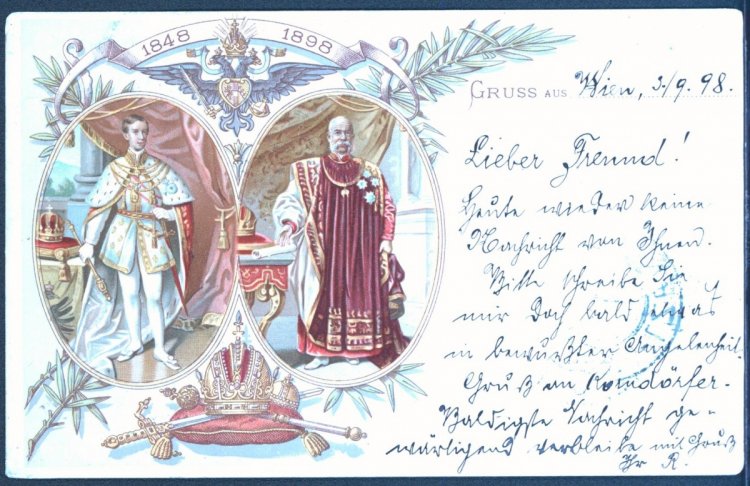 1848 1898
GRUSS AUS Wien, 3/9. 98.
Lieber Freund!
Heute wieder keine
Nachricht von Ihnen.
Bitte schreibe Sie
mir doch bald etwas
in bewußter Angelenheit.
Gruß an
Baldigste Nachricht ge-
wärtigend verbleibe mit Gruß
Ihr R.